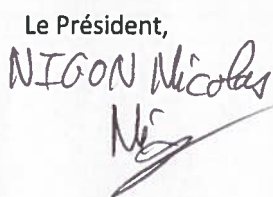 Le Président,
NIGON Nicolas